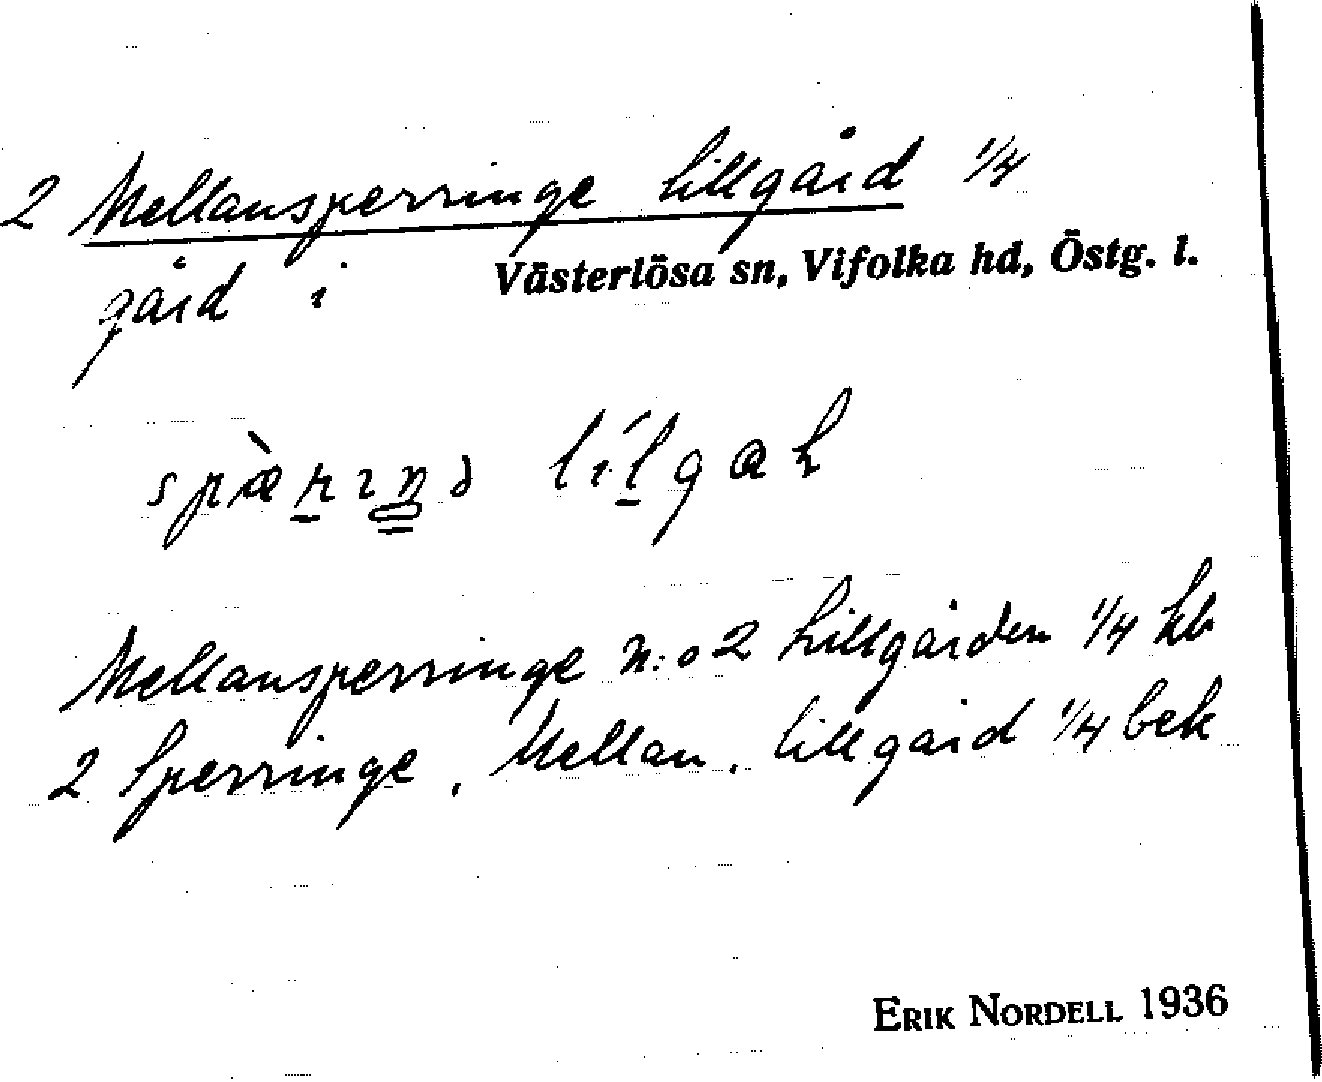 2 Mellansperringe Lillgård 1/4
gård i Västerlösa sn, Vifolka hd, Östg. l.
Mellansperringe N:o 2 Lillgården 1/4 kb
2 Sperringe, Mellan, Lillgård 1/4 bek
ERIK NORDELL 1936